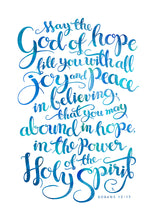 May the
God of hope
fill you with all
joy and peace
in believing,
that you may
abound in hope,
in the Power
of the
Holy Spirit
ROMANS 15:13